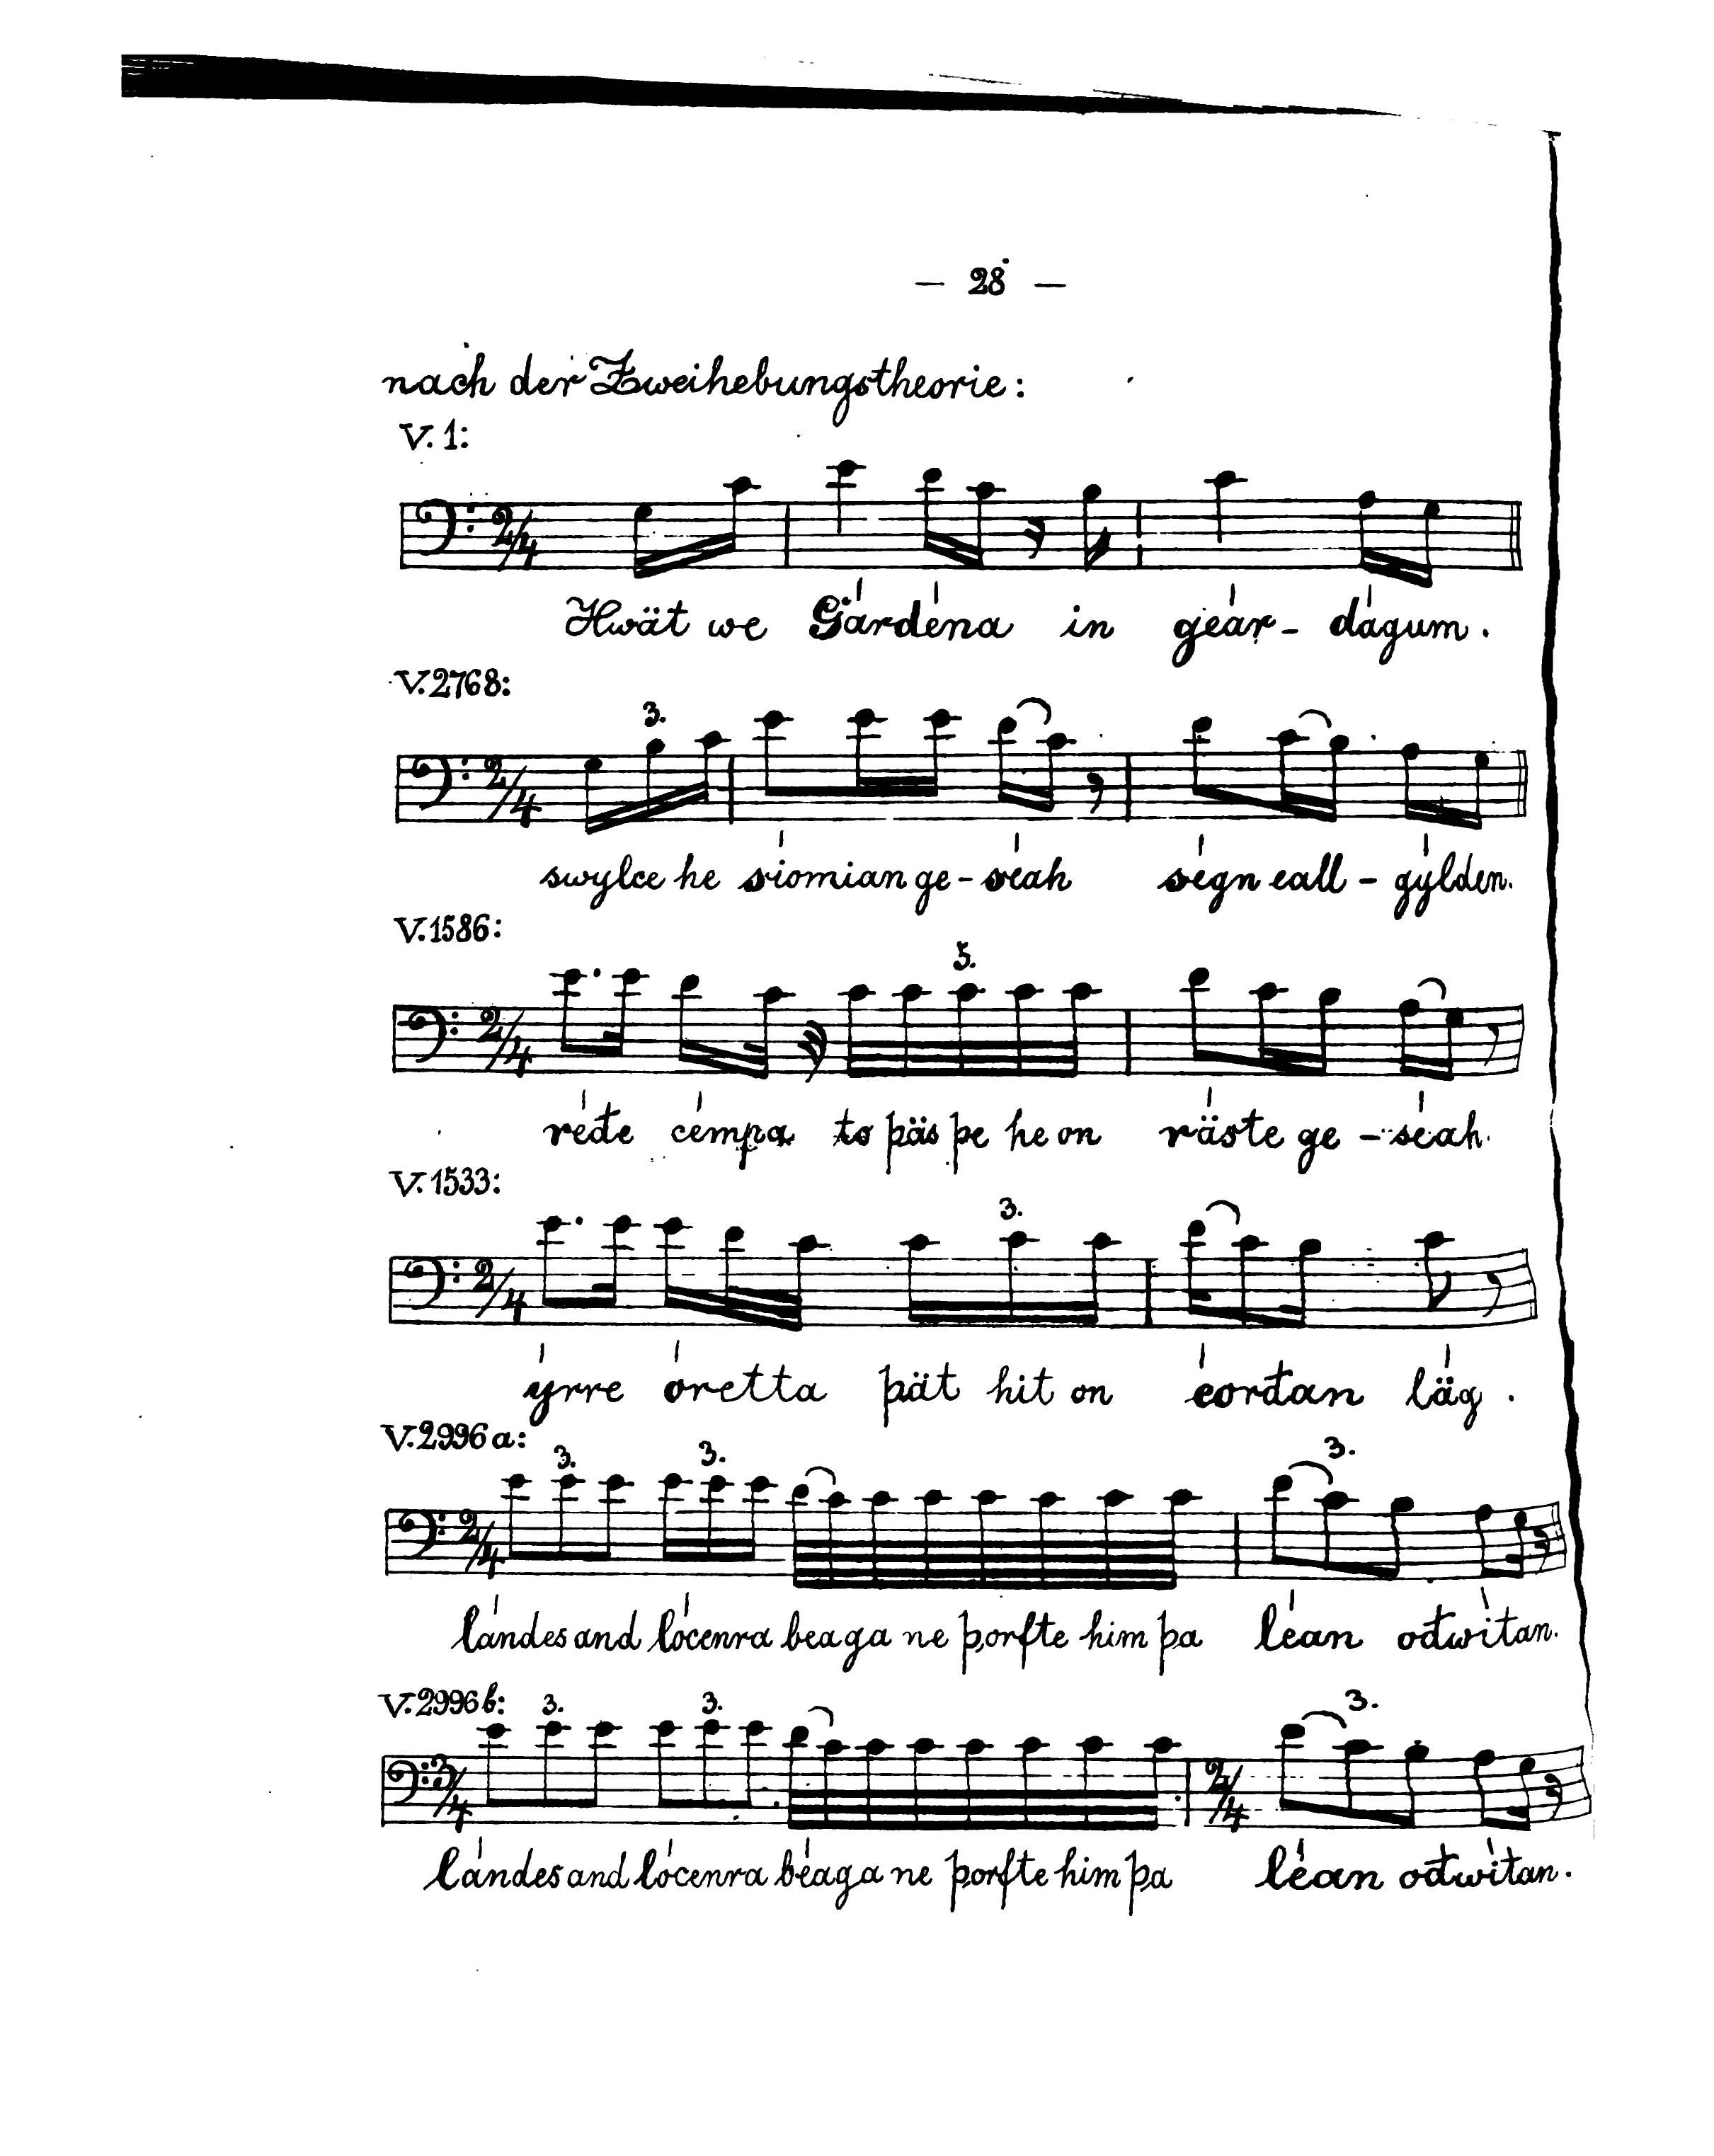 — 28 —
nach der Zweihebungstheorie:
V. 1:
2/4
Hwät we Gárdéna in géar - dágum.
V. 2768:
3.
2/4
swylce he síomian ge - séah ségn eall - gýlden.
V. 1586:
5.
2/4
réđe cémpa to þäs þe he on räste ge - séah.
V. 1533:
3.
2/4
ýrre óretta þät hit on éorđan läg.
V. 2996 a:
3. 3. 3.
2/4
lándes and lócenra beaga ne þorfte him þa léan ođwítan.
V. 2996 b:
3. 3. 3.
3/4 2/4
lándes and lócenra béaga ne þorfte him þa léan ođwítan.